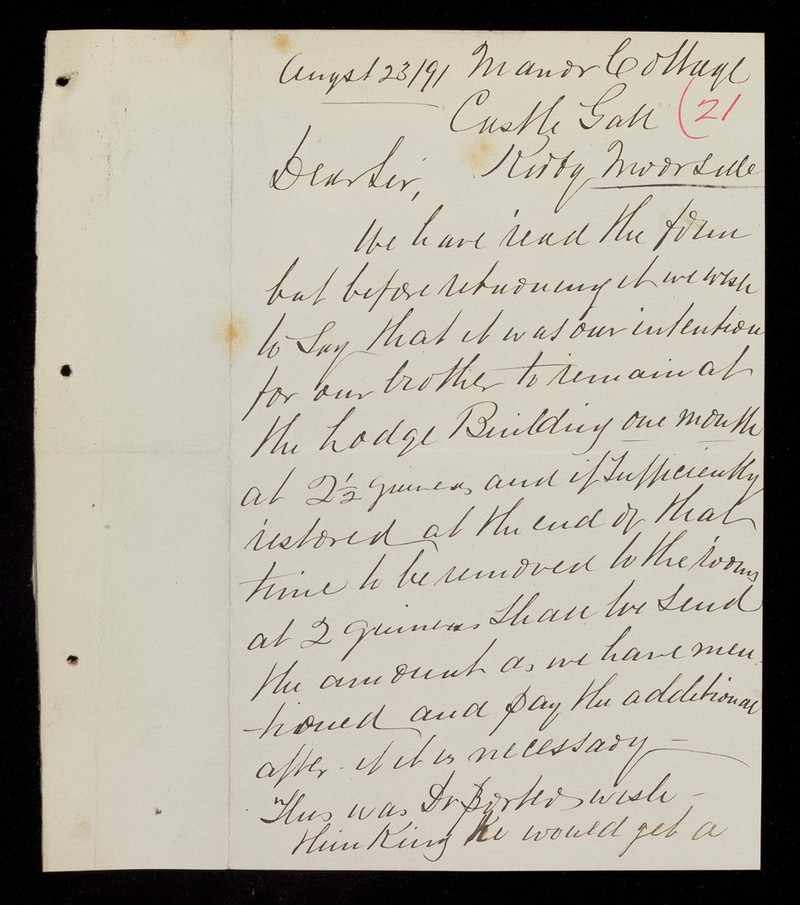 Augst 23/91 Manor Cottage
Castle Gate (21
Dear Sir, Kirby Moorside
We have read the form
but before returning it we wish
to Say that it was our intention
for our brother to remain at
the Lodge Building one month
at 2½ guineas and if Sufficiently
restored at the end of that
time to be removed to the rooms
at 2 guineas Shall we Send
the amount as we have men
-tioned and pay the additional
after if it is necessary –
This was Dr wish –
thinking he would get a